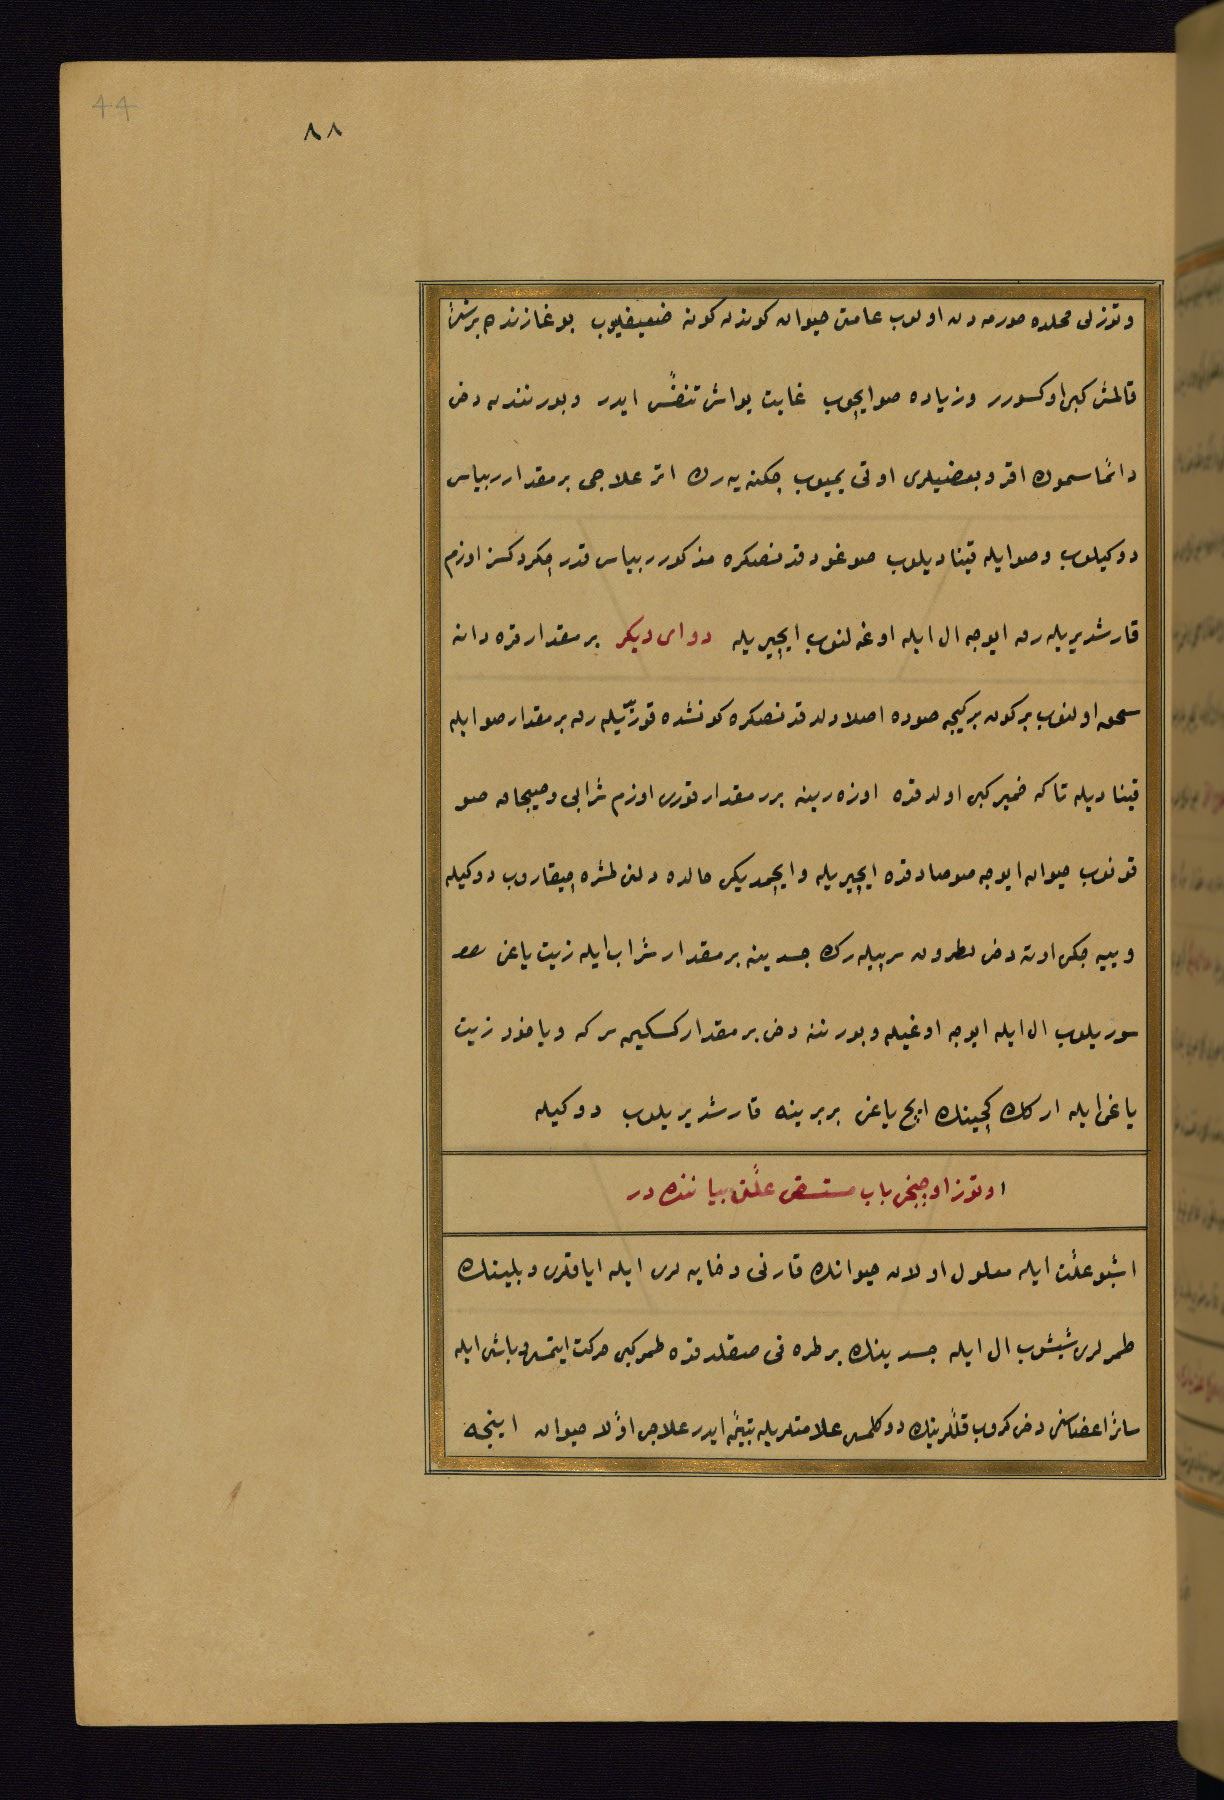 44
٨٨
و توزلی محلده صورمەدن اولوب عامتی حیوان کوندن کونه ضعیفلیوب بوغازنده برشئ
قالمش کبی اوکسورر و زیاده صو ایچوب غایت یواش تنفّس ایدر و بورنندن دخی
دائما سموك اقر و بعضیلری اوتی یمیوب چکنەیەرك اتر علاجی بر مقدار ریباس
دوکیلوب و صو ایله قینادیلوب صوغودقدنصکره مذکور ریباس قدر چکردکسز اوزم
قارشدیریله رق ایوجه ال ایله اوغەلنوب ایچیریله دوای دیکر بر مقدار قره دانه
سحق اولنوب بر کون بر کیجه صوده اصلادلدقدنصکره کونشده قوریدیله رق بر مقدار صو ایله
قینادیله تا که خمیر کبی اولدقده اوزەرینه برر مقدار قوری اوزم شرابی و صیجاق صو
قونوب حیوان ایوجه صوصادقده ایچیریله و ایچمدیکی حالده دلی طشره چیقاروب دوکیله
و ییه جکی اوته دخی نطرون سرپیلەرك جسدینه بر مقدار شراب ایله زیت یاغی
سوریلوب ال ایله ایوجه اوغیله و بورننه دخی بر مقدار کسکین سرکه و یاخود زیت
یاغی ایله ارکك کچینك ایچ یاغی بربرینه قارشدیریلوب دوکیله
اوتوز اوچنجی باب مستسقی علّتی بیاننده در
اشبو علّت ایله معلول اولان حیوانك قارنی و خایه لری ایله ایاقلری و بلینك
طمرلری شیشوب ال ایله جسدینك بر طرفی صقلدقده طمر کبی حرکت ایتمسی و باشی ایله
سائر اعضاسی دخی کروب قللرینك دوکلمسی علامتلریله تبیّن ایدر علاجی اوّلا حیوان اینجه